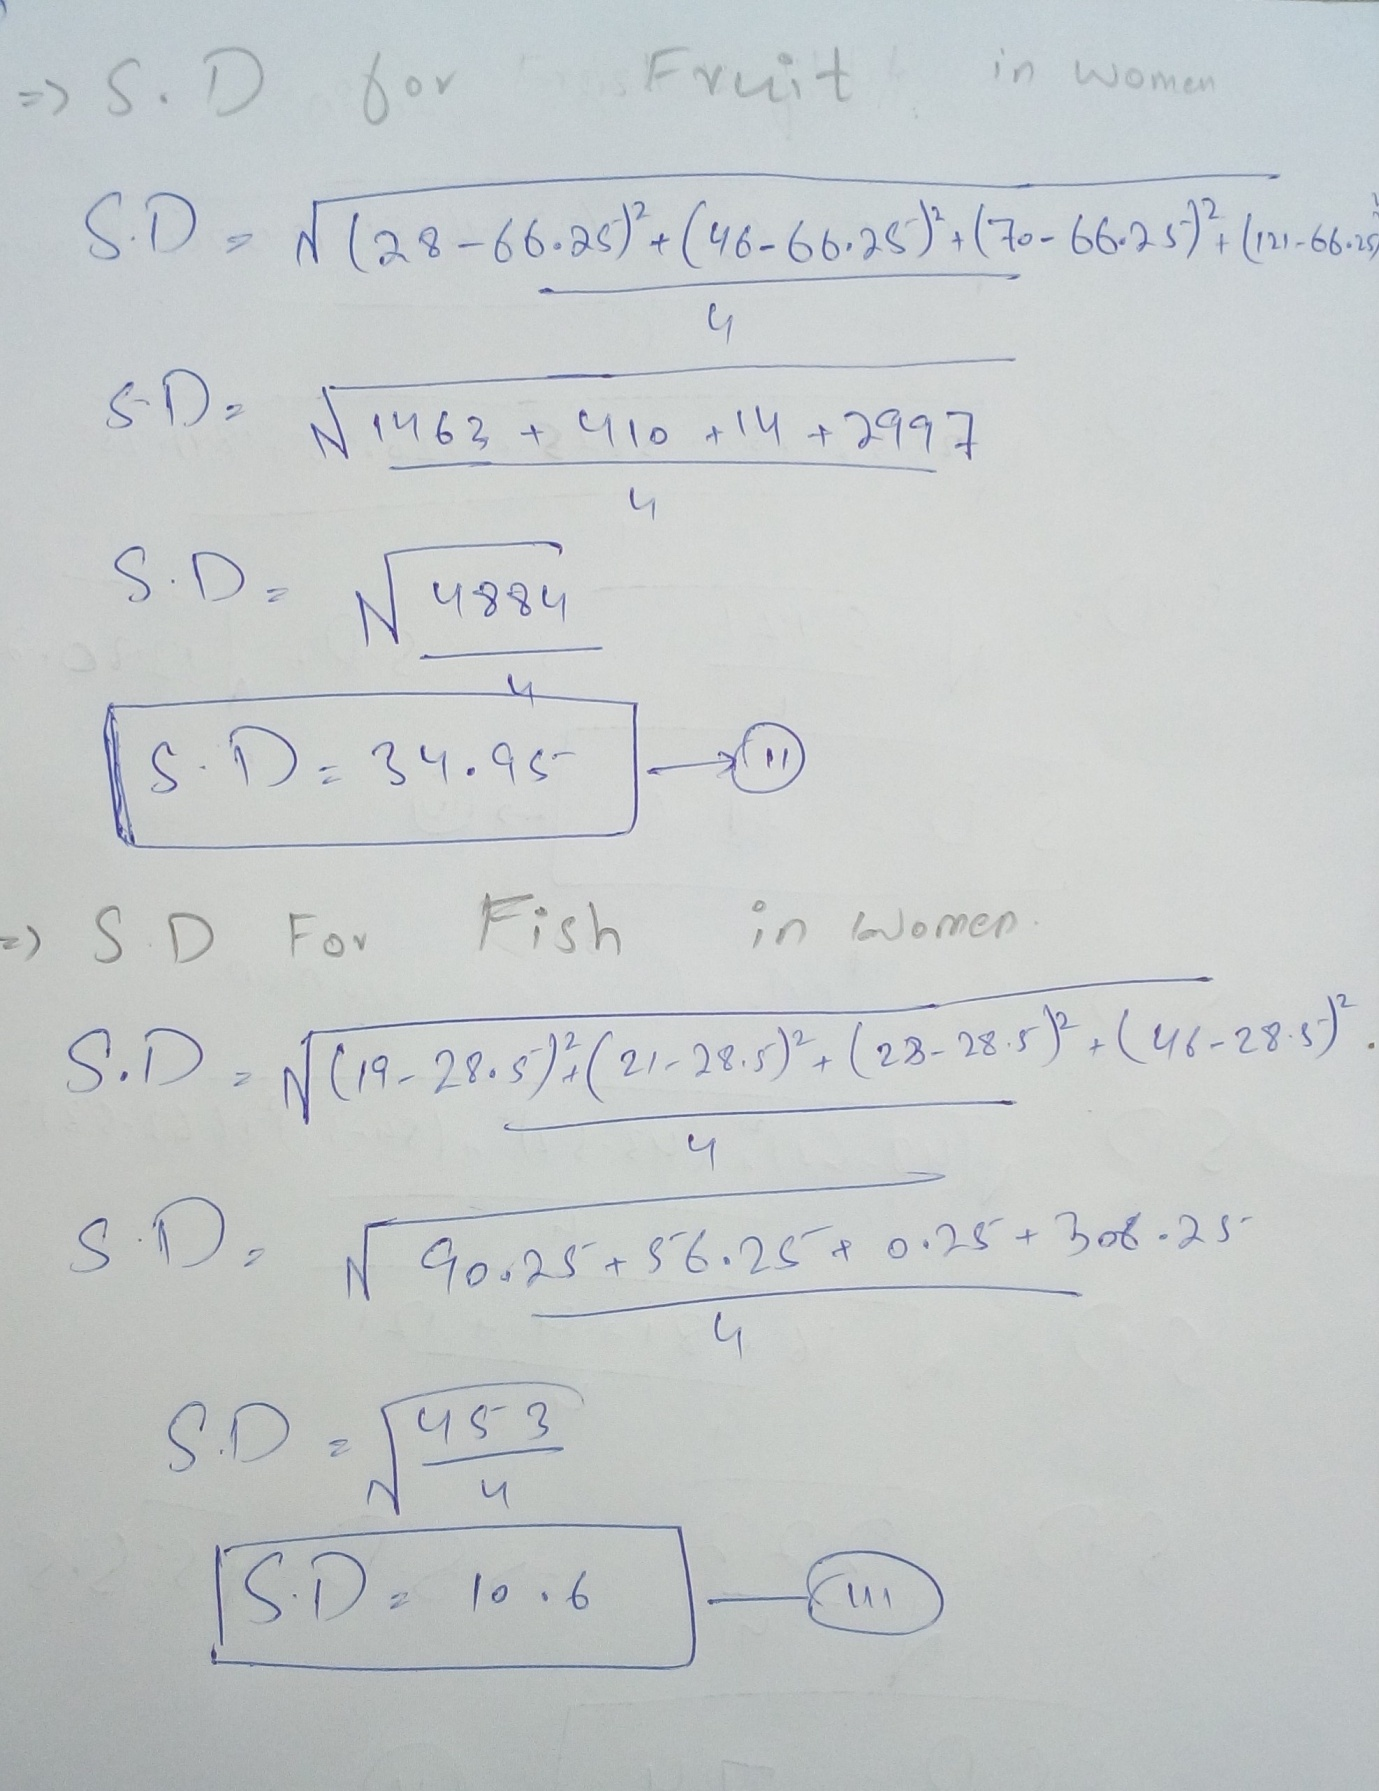 => S.D for Fruit in women
S.D = √(28-66.25)²+(46-66.25)²+(70-66.25)²+(121-66.25)²
4
S.D = √1463 + 410 + 14 + 2997
4
S.D = √4884
4
S.D = 34.95 → II
=> S.D For Fish in women.
S.D = √(19-28.5)²+(21-28.5)²+(28-28.5)²+(46-28.5)².
4
S.D = √90.25+56.25+0.25+306.25
4
S.D = √453
4
S.D = 10.6 — III